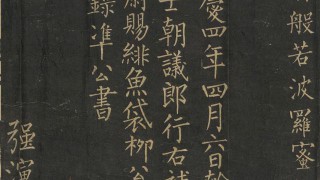 般若波羅蜜
慶四年四月六日
士朝議郎行右補
尉賜緋魚袋柳公
錄準公書
强演